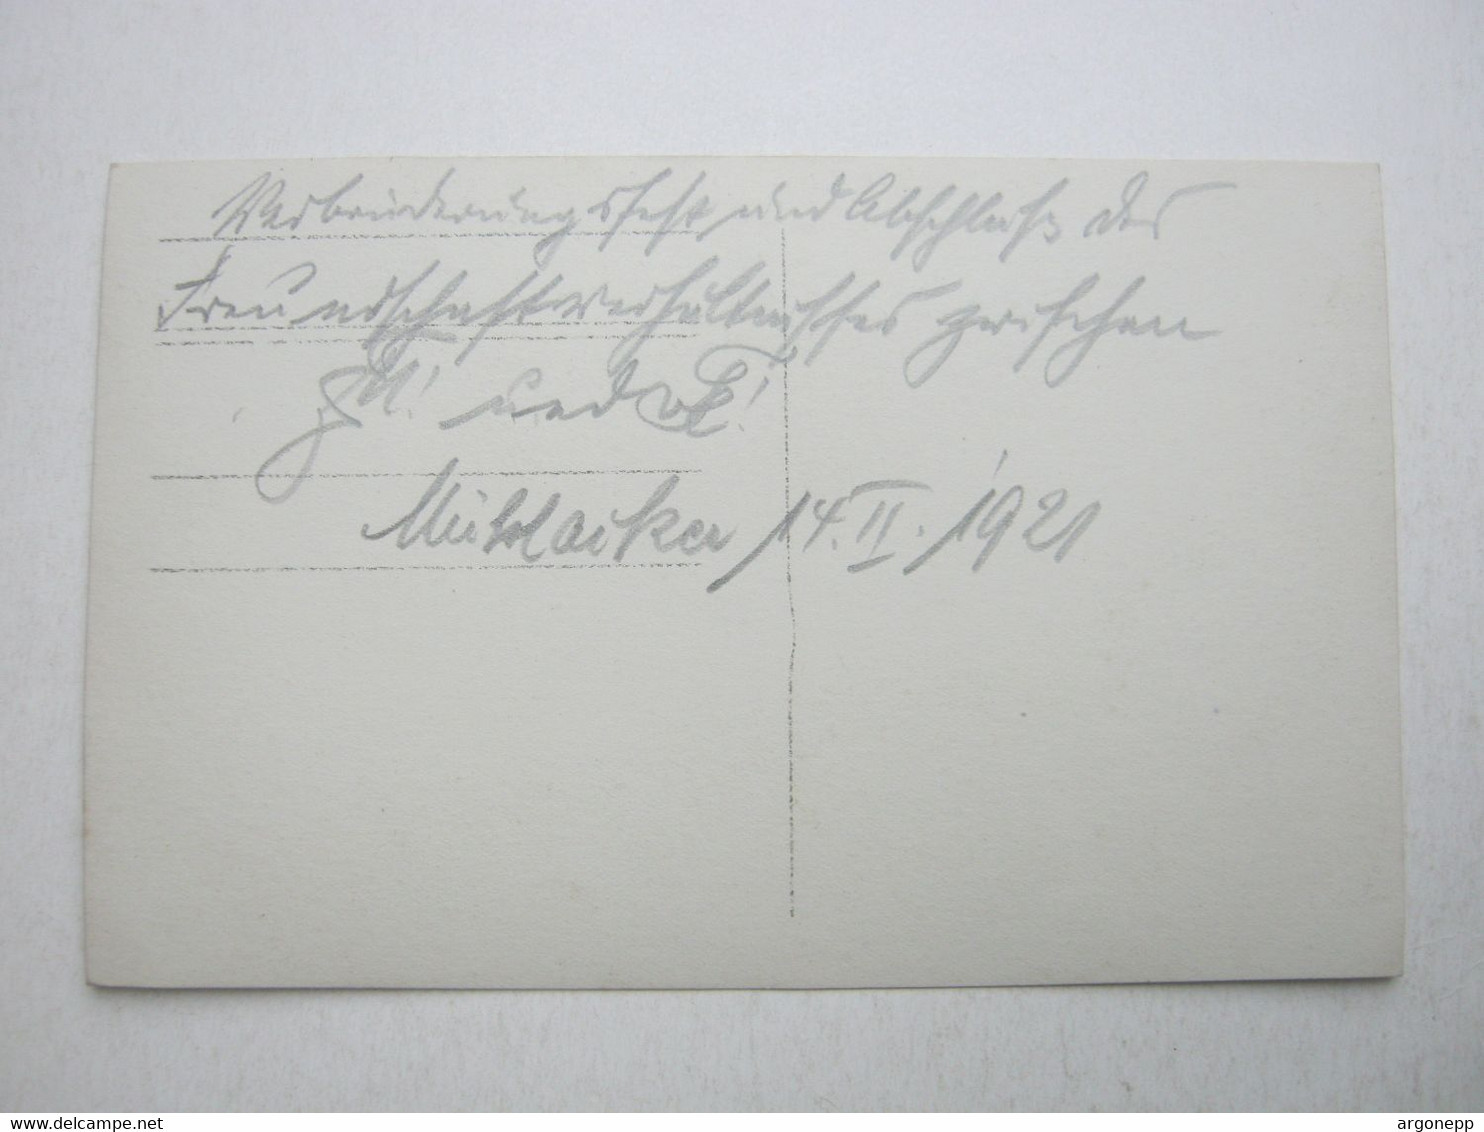 Verbrüderungsfest und Abschluß des
Freundschaftverhältnisses zwischen
und
Mühlacker, 14. II. 1921
delcampe.net
argonepp